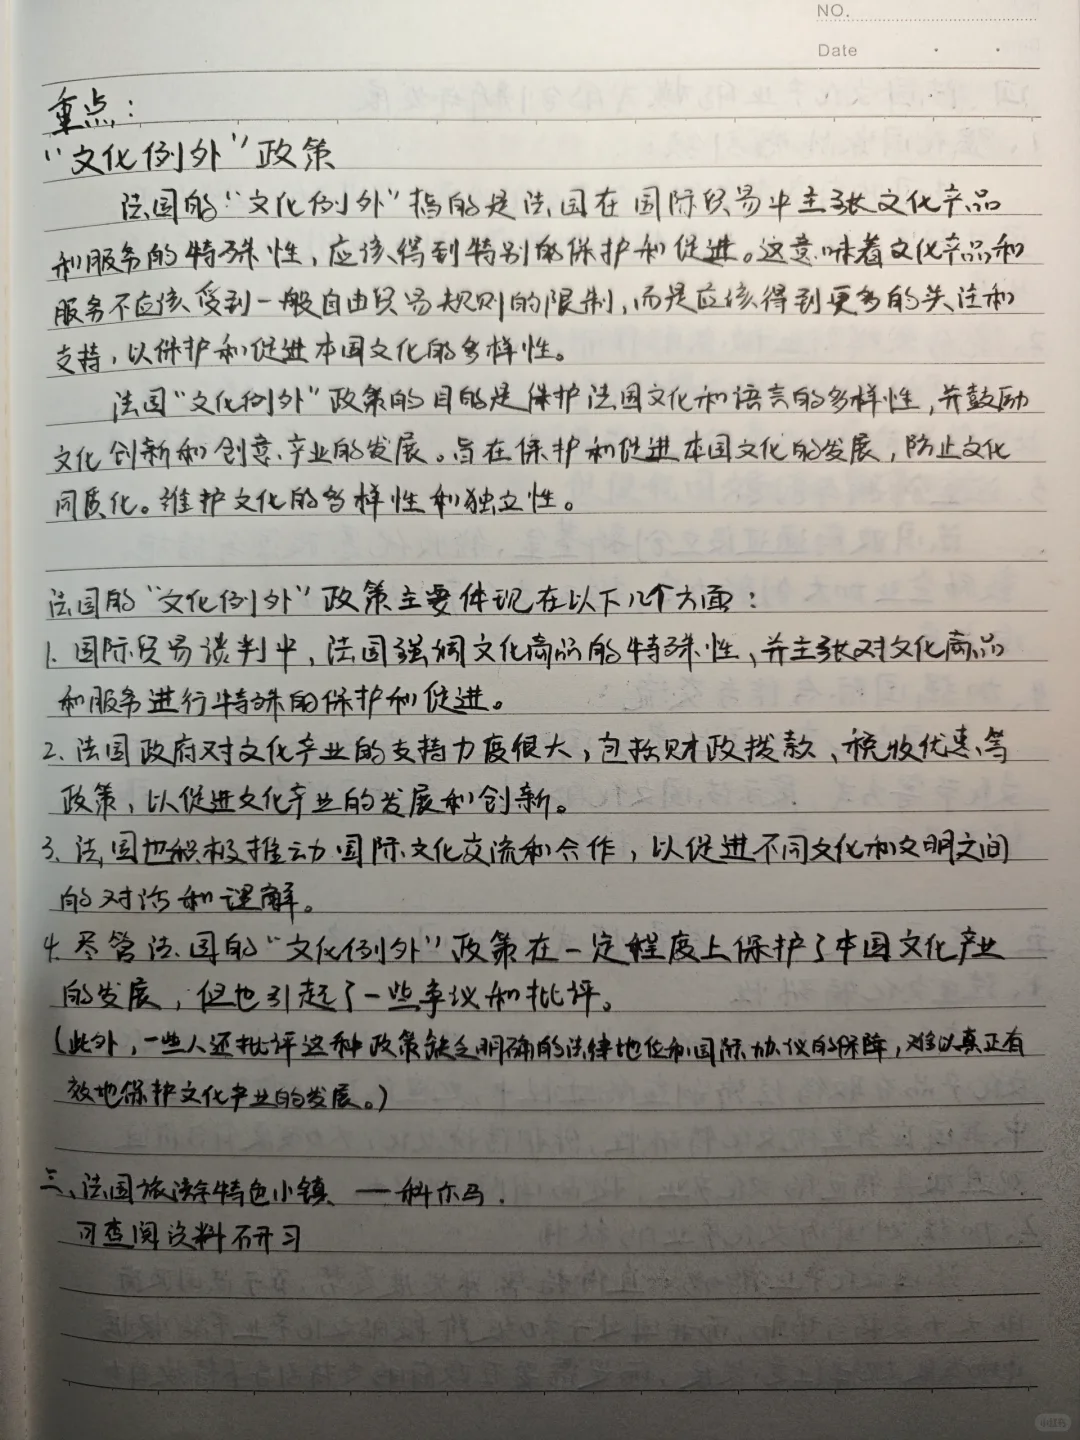 NO.
Date
重点：
“文化例外”政策
法国的“文化例外”指的是法国在国际贸易中主张文化产品
和服务的特殊性，应该得到特别的保护和促进。这意味着文化产品和
服务不应该受到一般自由贸易规则的限制，而是应该得到更多的关注和
支持，以保护和促进本国文化的多样性。
法国“文化例外”政策的目的是保护法国文化和语言的多样性，并鼓励
文化创新和创意产业的发展。旨在保护和促进本国文化的发展，防止文化
同质化。维护文化的多样性和独立性。
法国的“文化例外”政策主要体现在以下几个方面：
1. 国际贸易谈判中，法国强调文化商品的特殊性，并主张对文化商品
和服务进行特殊的保护和促进。
2. 法国政府对文化产业的支持力度很大，包括财政拨款、税收优惠等
政策，以促进文化产业的发展和创新。
3. 法国也积极推动国际文化交流和合作，以促进不同文化和文明之间
的对话和理解。
4. 尽管法国的“文化例外”政策在一定程度上保护了本国文化产业
的发展，但也引起了一些争议和批评。
（此外，一些人还批评这种政策缺乏明确的法律地位和国际协议的保障，难以真正有
效地保护文化产业的发展。）
三、法国旅游特色小镇 — 科尔马.
可查阅资料研习
小红书